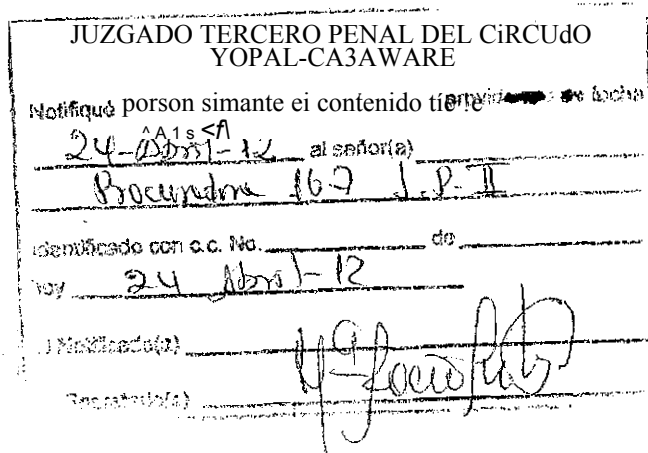 JUZGADO TERCERO PENAL DEL CiRCUdO
YOPAL-CA3AWARE
Notifiqué porson simante ei contenido de fecha
24-Abril-12 al señor(a)
Procuradora 167 J.P. II
identificado con c.c. No. de
hoy 24 Abril-12
Notificado(a)
Mª Rocio
Secretario(a)